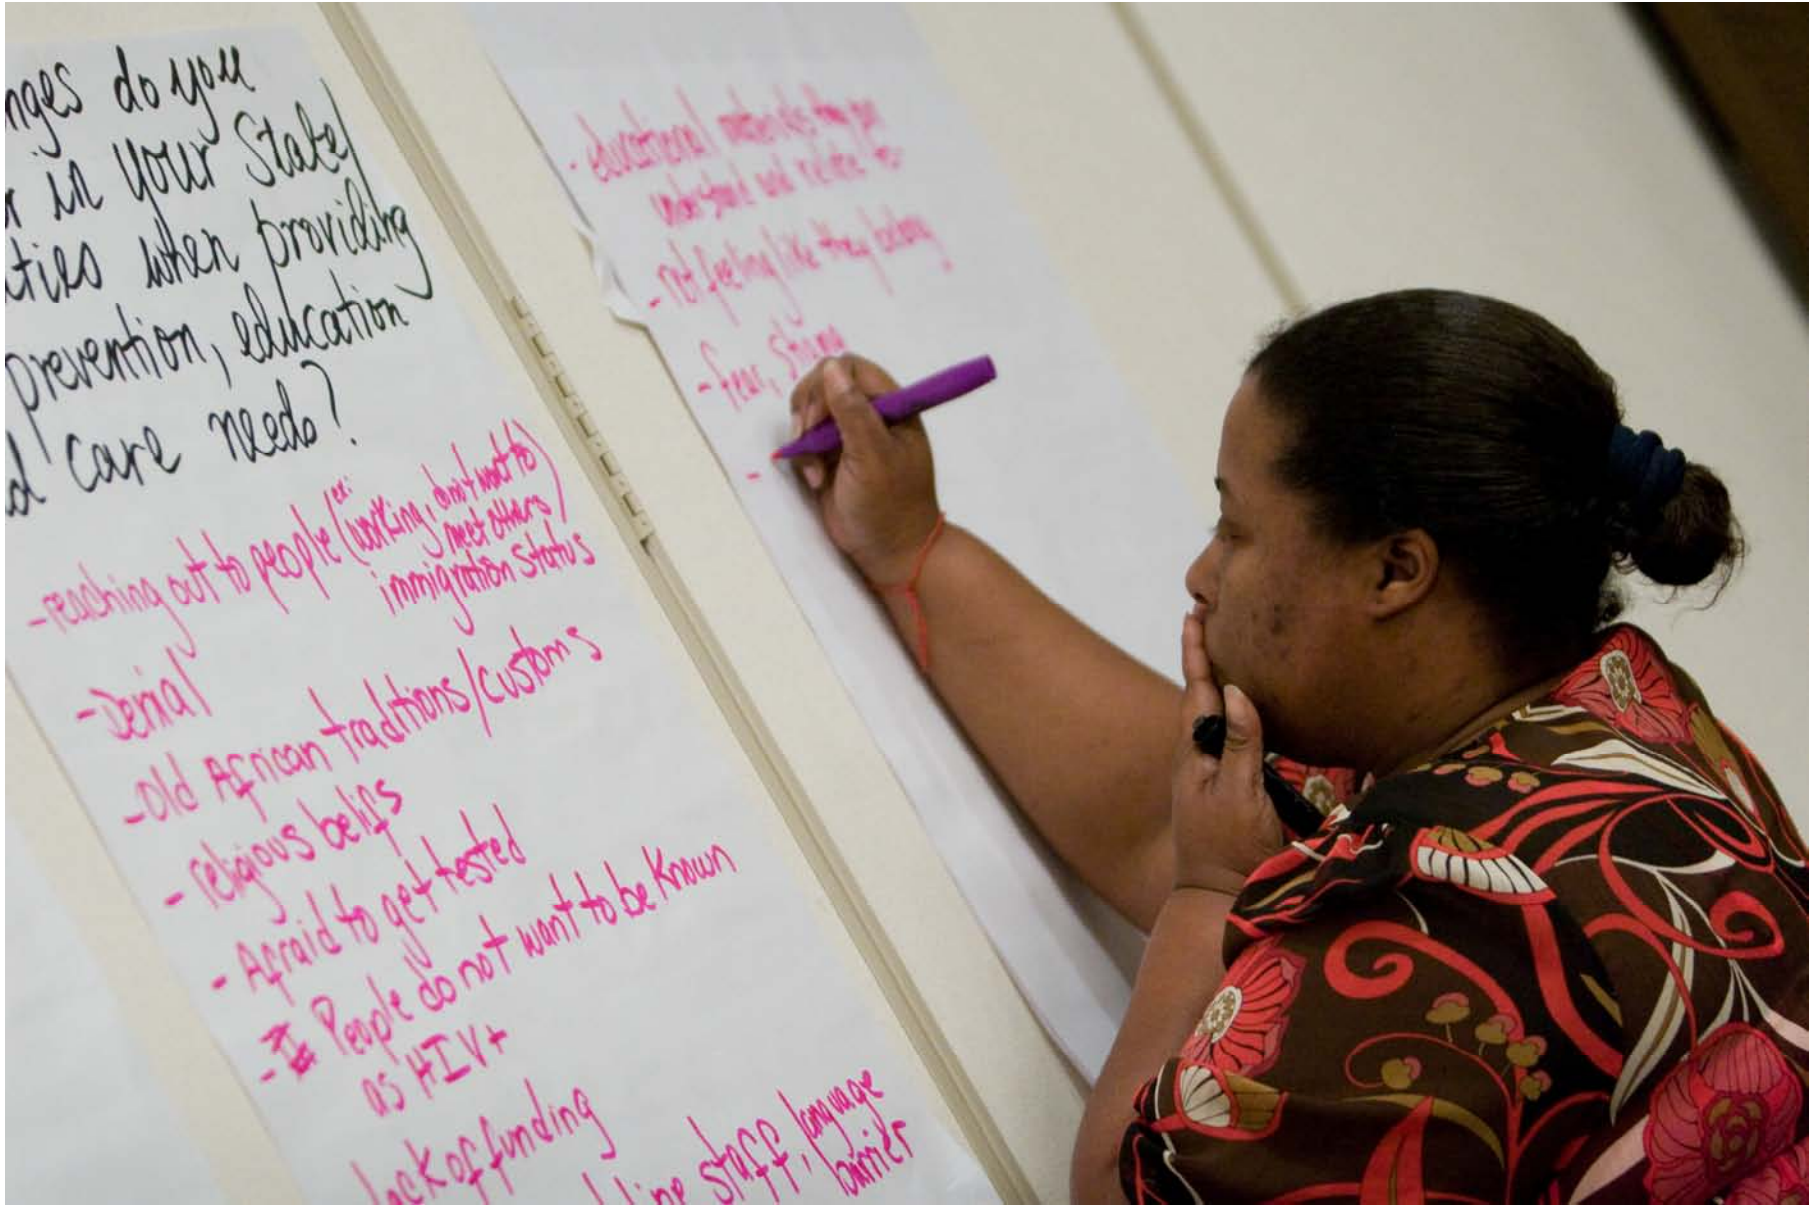 nges do you
r in your State/
ties when providing
prevention, education
d care needs?
-reaching out to people (ex: working, do not want to
meet others)
immigration status
-Denial
-old African traditions/customs
- religious belifs
- Afraid to get tested
- People do not want to be known
as HIV+
lack of funding
line staff, language
barrier
- educational materials they can
understand and relate to
- not feeling like they belong
- fear, stigma
-